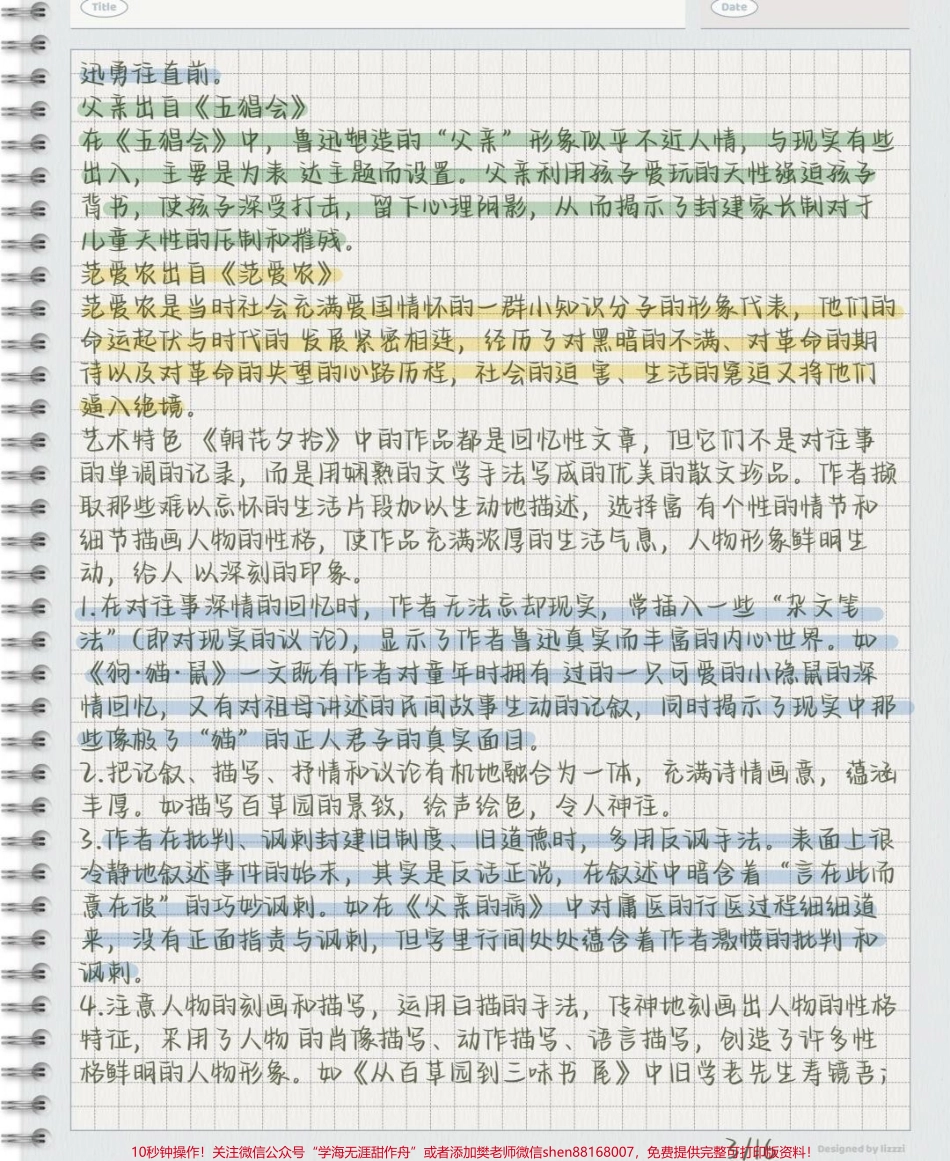 Title
Date
迅勇往直前。
父亲出自《五猖会》
在《五猖会》中，鲁迅塑造的“父亲”形象似乎不近人情，与现实有些
出入，主要是为表 达主题而设置。父亲利用孩子爱玩的天性强迫孩子
背书，使孩子深受打击，留下心理阴影，从 而揭示了封建家长制对于
儿童天性的压制和摧残。
范爱农出自《范爱农》
范爱农是当时社会充满爱国情怀的一群小知识分子的形象代表，他们的
命运起伏与时代的 发展紧密相连，经历了对黑暗的不满、对革命的期
待以及对革命的失望的心路历程，社会的迫 害、生活的窘迫又将他们
逼入绝境。
艺术特色 《朝花夕拾》中的作品都是回忆性文章，但它们不是对往事
的单调的记录，而是用娴熟的文学手法写成的优美的散文珍品。作者撷
取那些难以忘怀的生活片段加以生动地描述，选择富 有个性的情节和
细节描画人物的性格，使作品充满浓厚的生活气息，人物形象鲜明生
动，给人 以深刻的印象。
1.在对往事深情的回忆时，作者无法忘却现实，常插入一些“杂文笔
法”（即对现实的议 论），显示了作者鲁迅真实而丰富的内心世界。如
《狗·猫·鼠》一文既有作者对童年时拥有 过的一只可爱的小隐鼠的深
情回忆，又有对祖母讲述的民间故事生动的记叙，同时揭示了现实中那
些像极了“猫”的正人君子的真实面目。
2.把记叙、描写、抒情和议论有机地融合为一体，充满诗情画意，蕴涵
丰厚。如描写百草园的景致，绘声绘色，令人神往。
3.作者在批判、讽刺封建旧制度、旧道德时，多用反讽手法。表面上很
冷静地叙述事件的始末，其实是反话正说，在叙述中暗含着“言在此而
意在彼”的巧妙讽刺。如在《父亲的病》 中对庸医的行医过程细细道
来，没有正面指责与讽刺，但字里行间处处蕴含着作者激愤的批判 和
讽刺。
4.注意人物的刻画和描写，运用白描的手法，传神地刻画出人物的性格
特征，采用了人物 的肖像描写、动作描写、语言描写，创造了许多性
格鲜明的人物形象。如《从百草园到三味书 屋》中旧学老先生寿镜吾；
3/16
Designed by lizzzi
10秒钟操作！关注微信公众号“学海无涯甜作舟”或者添加樊老师微信shen88168007，免费提供完整百打印版资料！